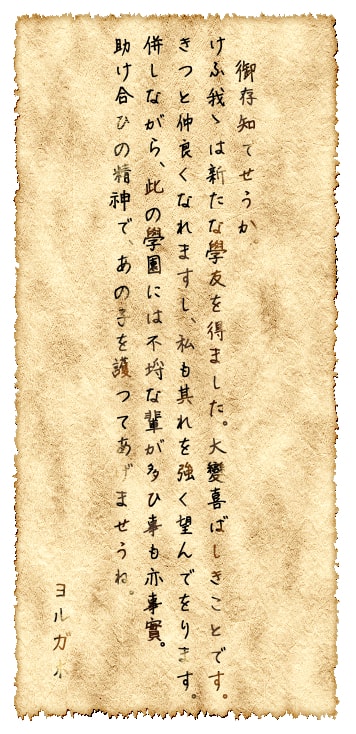 御存知でせうか
けふ我〻は新たな學友を得ました。大變喜ばしきことです。
きつと仲良くなれますし、私も其れを強く望んでをります。
併しながら、此の學園には不埒な輩が多ひ事も亦事實。
助け合ひの精神で、あの子を護つてあげませうね。
ヨルガオ